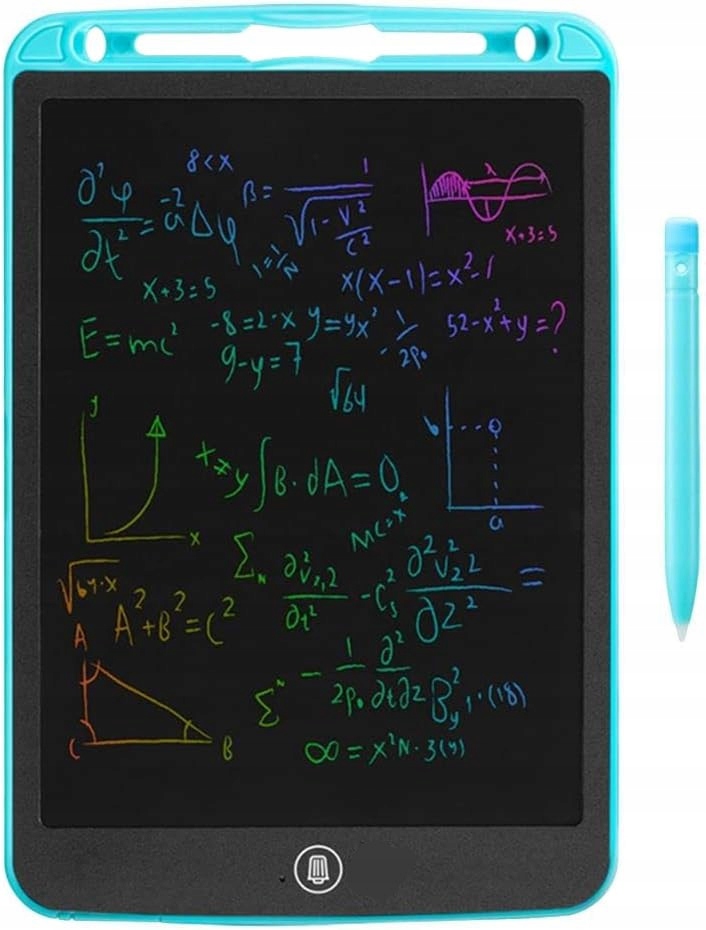 8<x
∂²φ/∂t² = a⁻²Δφ
β = 1/√(1-v²/c²)
λ
x+3=5
1=1/N
x(x-1)=x²-1
x+3=5
E=mc²
-8=2·x
y=yx²
-1/2ρ₀
52-x²+y=?
9-y=7
√64
y
x
b
a
x≠y
∫B·dA=0
MC=x²
√64·x
Σ_N ∂²v²₂,2/∂t² - C²_s ∂²v²₂2/∂z² =
A²+B²=C²
A
C
B
Σⁿ - 1/2ρ₀ ∂²/∂t∂z B²_y,·(18)
∞=x²N·3(y)